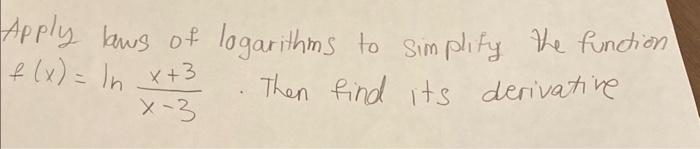 Apply laws of logarithms to simplify the function
f(x) = ln (x+3)/(x-3) . Then find its derivative